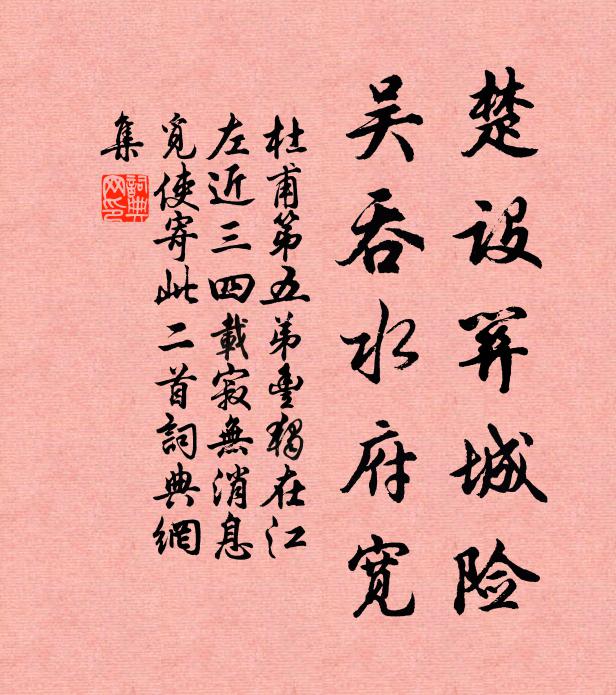 楚设关城险
吴吞水府宽
杜甫第五弟豊獨在江
左近三四載寂無消息
覓使寄此二首詞典網
集
詞典
网印